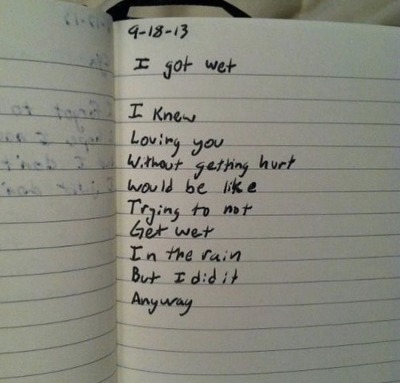 9-18-13
I got wet
I Knew
Loving you
Without getting hurt
Would be like
Trying to not
Get wet
In the rain
But I did it
Anyway